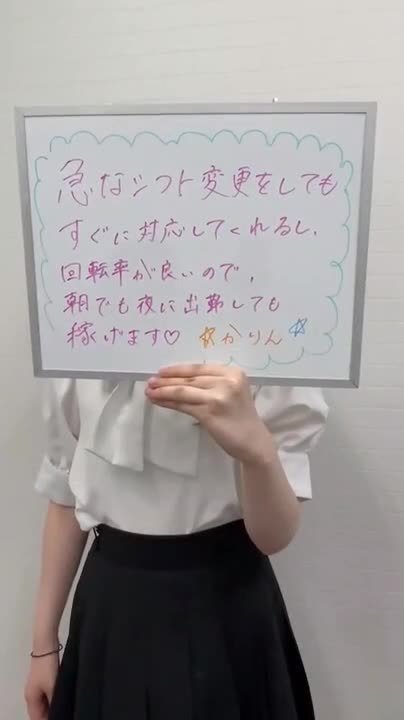 急なシフト変更をしても
すぐに対応してくれるし、
回転率が良いので、
朝でも夜に出勤しても
稼げます♡ ☆かりん☆